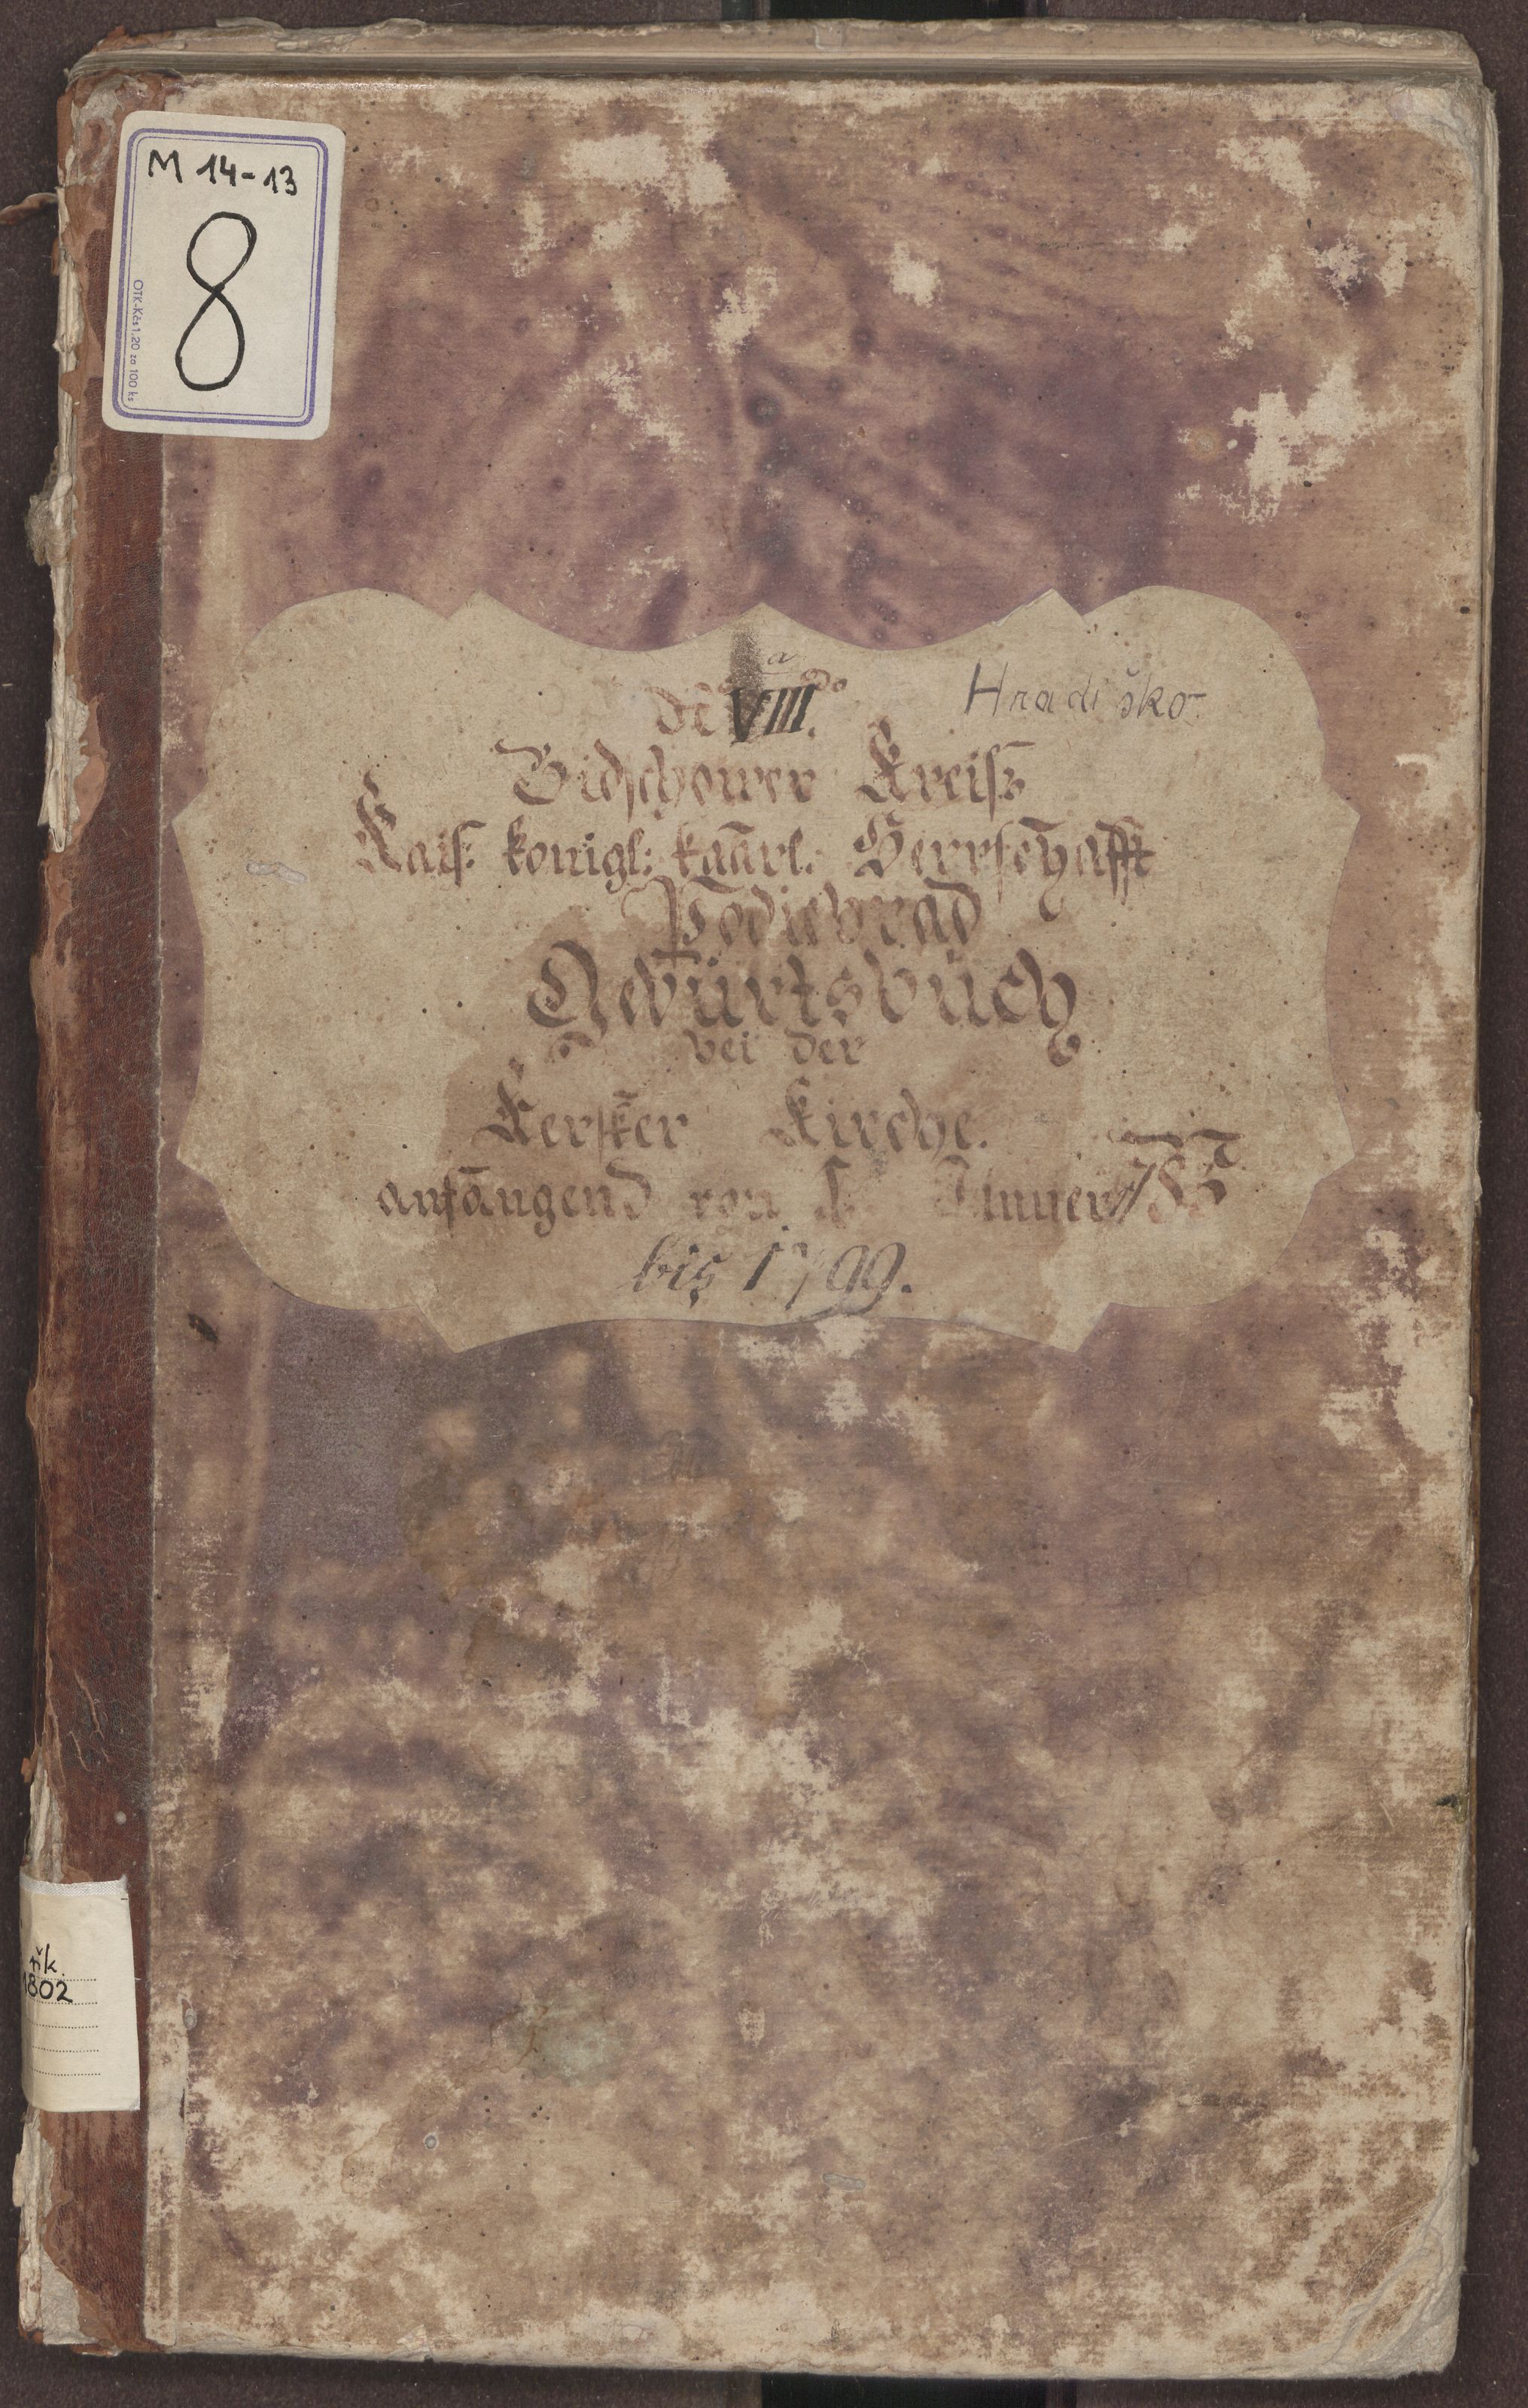 M 14-13
8
OTK-Kčs 1,20 za 100 ks
VIII.
Hradiško
Bidschower Kreiß
Kais: königl: kaārl: Herrschafft
Podiebrad
Gebürtsbuch
bei der
Kersker Kirche.
anfangend von Jänner
bis 1799.
řík.
1802